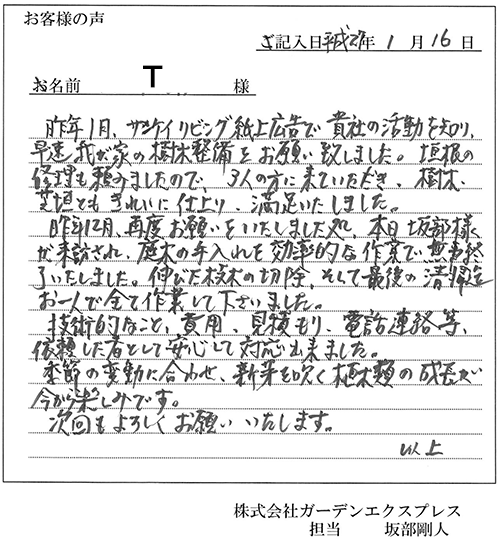 お客様の声
ご記入日平成27年 1 月 16 日
お名前 T 様
昨年1月、サンケイリビング紙上広告で貴社の活動を知り、
早速我が家の樹木整備をお願い致しました。垣根の
修理も頼みましたので、3人の方に来ていただき、樹木、
垣ともきれいに仕上り、満足いたしました。
昨年12月、再度お願いをいたしました処、本日坂部様
が来訪され、庭木の手入れを効率的な作業で無事終
了いたしました。伸びた枝木の切除、そして最後の清掃迄
お一人で全て作業して下さいました。
技術的なこと、費用、見積もり、電話連絡等、
依頼した者として安心して対応出来ました。
季節の変動に合わせ、新芽を吹く植木類の成長が
今から楽しみです。
次回もよろしくお願いいたします。
以上
株式会社ガーデンエクスプレス
担当 坂部剛人